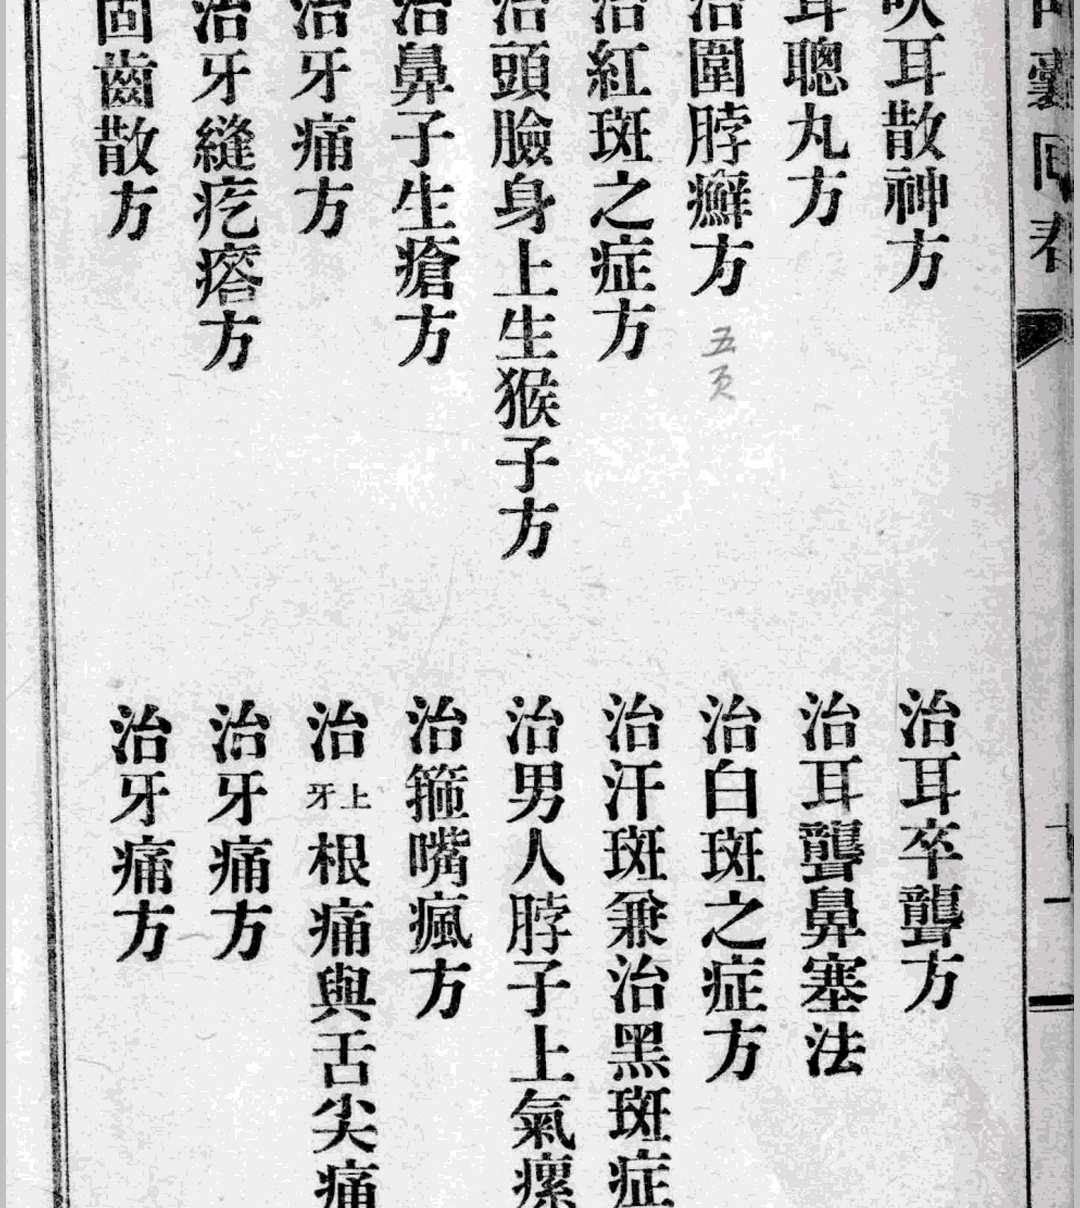 吹耳散神方
耳聰丸方
治圍脖癬方
五页
治紅斑之症方
治頭臉身上生猴子方
治鼻子生瘡方
治牙痛方
治牙縫疙瘩方
固齒散方
治耳卒聾方
治耳聾鼻塞法
治白斑之症方
治汗斑兼治黑斑症
治男人脖子上氣瘰
治箍嘴瘋方
治上牙根痛與舌尖痛
治牙痛方
治牙痛方
囊回春
十一